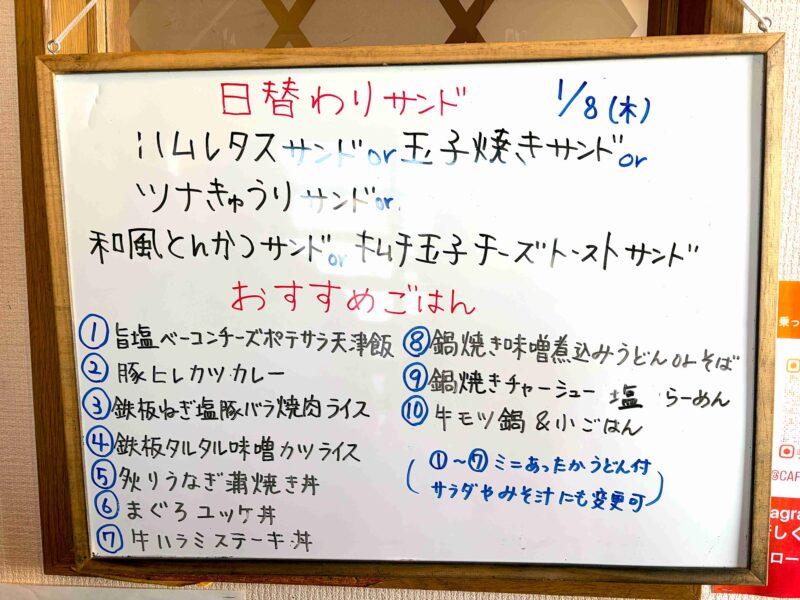 日替わりサンド 1/8(木)
ハムレタスサンドor玉子焼きサンドor
ツナきゅうりサンドor
和風とんかつサンドorキムチ玉子チーズトーストサンド
おすすめごはん
① 旨塩ベーコンチーズポテサラ天津飯
② 豚ヒレカツカレー
③ 鉄板ねぎ塩豚バラ焼肉ライス
④ 鉄板タルタル味噌カツライス
⑤ 炙りうなぎ蒲焼き丼
⑥ まぐろユッケ丼
⑦ 牛ハラミステーキ丼
⑧ 鍋焼き味噌煮込みうどんorそば
⑨ 鍋焼きチャーシュー 塩 らーめん
⑩ 牛モツ鍋&小ごはん
(①~⑦ミニあったかうどん付
サラダやみそ汁にも変更可)
乗っ
@CAF
agra
しく
ロー